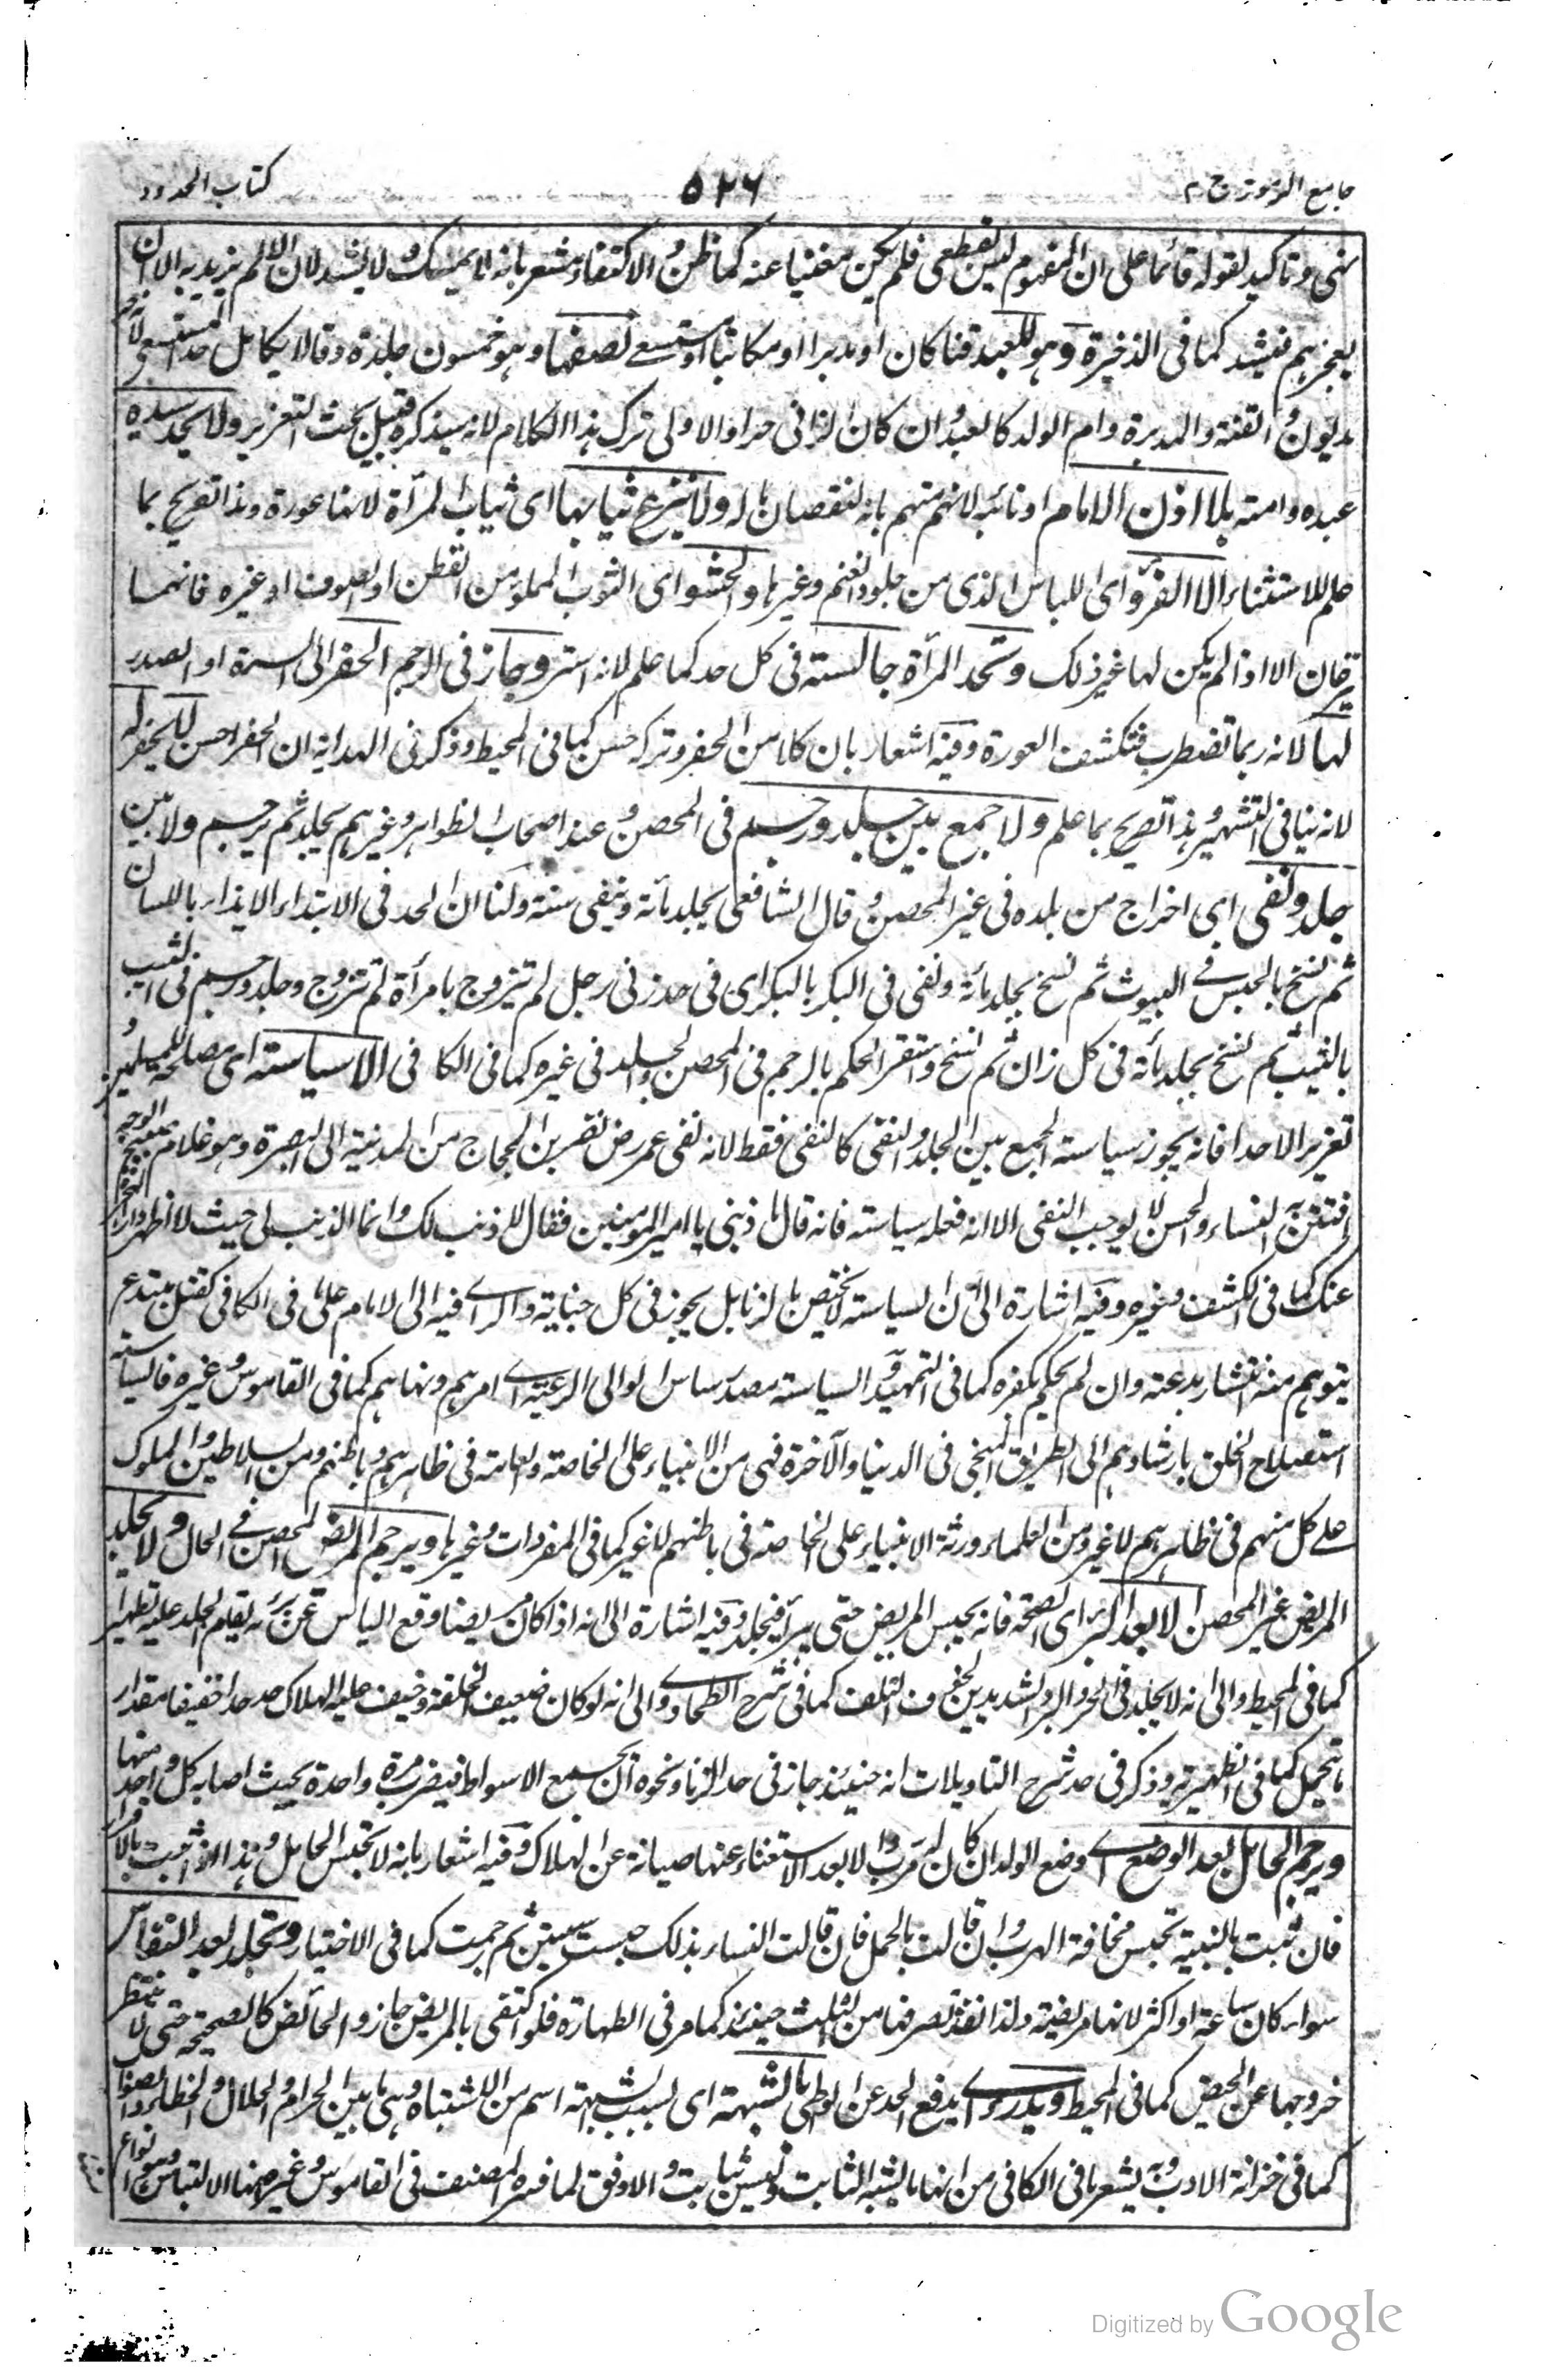 جامع الرموز ج ٢
٥٢٦
كتاب الحدود
وتاكيد لقوله قائما على ان المفهوم ليس بقطعى فلم يكن مغنيا عنه كما ظن و الاكتفاء مشعر بانه لا يمسك ولا يشد لان الالم يزيد به الا ان
يعجزهم فيشد كما فى الذخيرة وهو للعبد قنا كان او مدبرا او مكاتبا او مستسعى نصفها وهو خمسون جلدة وقالا يكامل حد المستسعى لانه حر
مديون و القنة والمدبرة وام الولد كالعبد و ان كان الزانى حرا والاولى ترك هذا الكلام لانه سيذكره قبيل بحث التعزير ولا يحد سيده
عبده وامته بلا اذن الامام او نائبه لانهم متهم بانه لنقصان ماله ولا ينزع ثيابها اى ثياب المرأة لانها عورة وهذا تصريح بما
علم للاستثناء الا الفرو اى اللباس الذى من جلود الغنم وغيرها والحشو اى الثوب المملو من القطن او الصوف او غيره فانهما
ينزعان الا اذا لم يكن لها غير ذلك وتحد المرأة جالسة فى كل حد كما علم لانه استر وجاز فى الرجم الحفر الى السرة او الصدر
لها لانه ربما تضطرب فتكشف العورة وفيه اشعار بان كلا من الحفر وتركه حسن كما فى المحيط وذكر فى الهداية ان الحفر احسن لا يحفر له
لانه ينافى التشهير و هذا تصريح بما علم ولا جمع بين جلد ورجم فى المحصن و عند اصحاب الظواهر وغيرهم يجلد ثم يرجم ولا بين
جلد ونفى اى اخراج من بلده فى غير المحصن و قال الشافعى يجلد مائة وينفى سنة ولنا ان الحد فى الابتداء الايذاء باللسان
ثم نسخ بالحبس فى البيوت ثم نسخ بجلد مائة ونفى فى البكر بالبكر اى فى حد زنى رجل لم يتزوج بامرأة لم تتزوج وجلد ورجم فى الثيب
بالثيب ثم نسخ بجلد مائة فى كل زان ثم نسخ و استقر الحكم بالرجم فى المحصن والجلد فى غيره كما فى الكافى الا سياسة اى مصالحة للمسلمين و
تعزيرا لاحدا فانه يجوز سياسة الجمع بين الجلد و النفى كالنفى فقط لانه نفى عمر رض نصر بن الحجاج من المدينة الى البصرة وهو غلام صبيح الوجه
افتتن به النساء والحسن لا يوجب النفى الا انه فعله سياسة فانه قال ما ذنبى يا امير المؤمنين فقال لا ذنب لك وانما الذنب لى حيث لا اطهر دار الهجرة
عنك كما فى الكشف وغيره وفيه اشارة الى ان السياسة لا يختص بالزنا بل يجوز فى كل جناية والراى فيه الى الامام على ما فى الكافى كقتل مبتدع
يتوهم منه انتشار بدعته وان لم يحكم بكفره كما فى التمهيد و السياسة مصدر ساس الوالى الرعية اى امرهم ونهاهم كما فى القاموس وغيره فالسياسة
استصلاح الخلق بارشادهم الى الطريق المنجى فى الدنيا والآخرة فهى من الانبياء على الخاصة والعامة فى ظاهرهم وباطنهم ومن السلاطين والملوك
على كل منهم فى ظاهرهم لا غير ومن العلماء ورثة الانبياء على الخاصة فى باطنهم لا غير كما فى المفردات وغيرها ويرجم المريض المحصن فى الحال ولا يجلد
المريض غير المحصن الا بعد البرء اى الصحة فانه يحبس المريض حتى يبرأ فيجلد وفيه اشارة الى انه اذا كان مريضا وقع الياس عن برئه يقام الجلد عليه تطهيرا
كما فى المحيط والى انه لا يجلد فى الحر والبرد الشديدين لخوف التلف كما فى شرح الطحاوى والى انه لو كان ضعيف الخلقة وخيف عليه الهلاك حد حدا خفيفا مقدار
ما يتحمل كما فى الظهيرية وذكر فى حد شرح التاويلات انه حينئذ جاز فى حد الزنا ونحوه ان يجمع الاسواط فيضرب مرة واحدة بحيث اصابه كل واحد منها
ويرجم الحامل بعد الوضع اى وضع الولد ان كان له مرب والا بعد الاستغناء عنها صيانة عن الهلاك وفيه اشعار بانه لا تحبس الحامل وهذا اذا ثبت بالاقرار
فان ثبت بالبينة تحبس مخافة الهرب و ان قالت بالحمل فان قالت النساء بذلك حبست سنتين ثم رجمت كما فى الاختيار وتجلد بعد النفاس
سواء كان ساعة او اكثر لانها مريضة ولذا نفذ تصرفها من الثلث حينئذ كما مر فى الطهارة فلو اكتفى بالمريض جاز والحائض كالصحيحة حتى لا ينتظر
خروجها عن الحيض كما فى المحيط ويدرء اى يدفع الحد عن الوطى بالشبهة اى بسبب الشبهة اسم من الاشتباه وهى ما بين الحرام والحلال والخطاء والصواب
كما فى خزانة الادب وبه يشعر ما فى الكافى من انها ما يشبه الثابت وليس بثابت و الاوفق لما فسره المصنف فى القاموس وغيره انها الالتباس وهو انواع
Digitized by Google